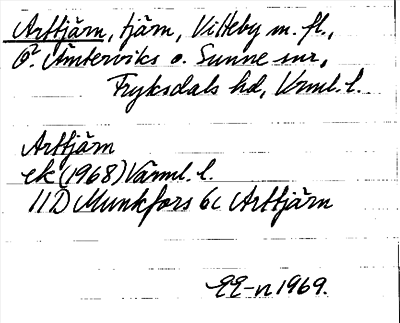 Arttjärn, tjärn, Vitteby m. fl.,
Ö. Ämterviks o. Sunne snr,
Fryksdals hd, Vrml. l.
Arttjärn
ek (1968) Värml. l.
11D Munkfors 6c Arttjärn
1969.